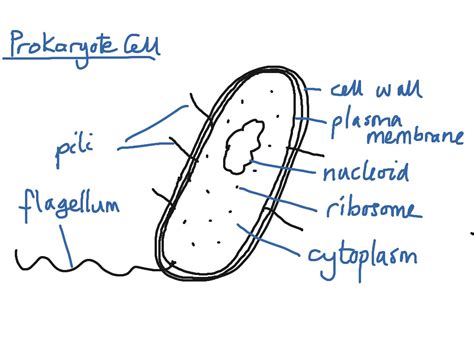 Prokaryote Cell
cell wall
plasma
membrane
pili
nucleoid
flagellum
ribosome
cytoplasm